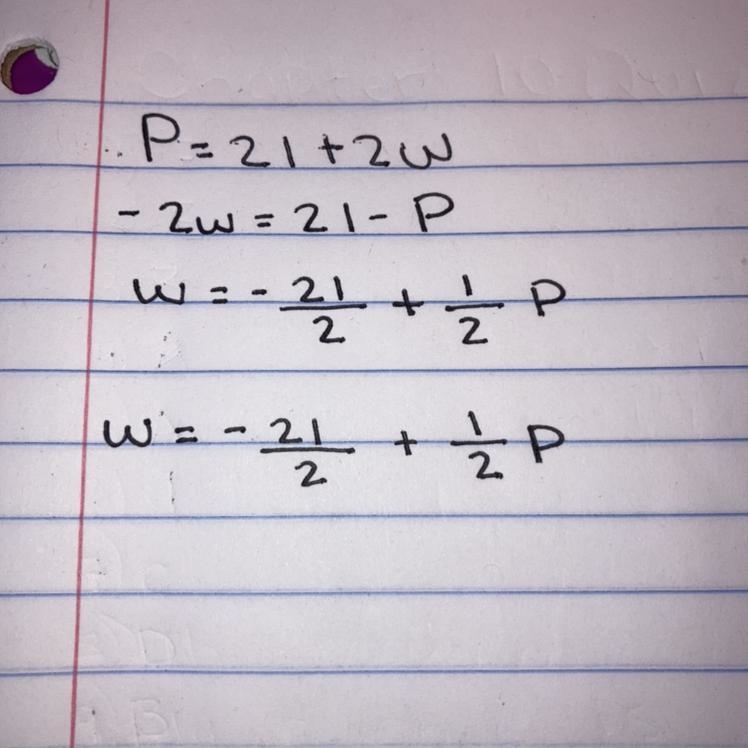 P = 21 + 2w
- 2w = 21 - P
w = - 21/2 + 1/2 P
w = - 21/2 + 1/2 P